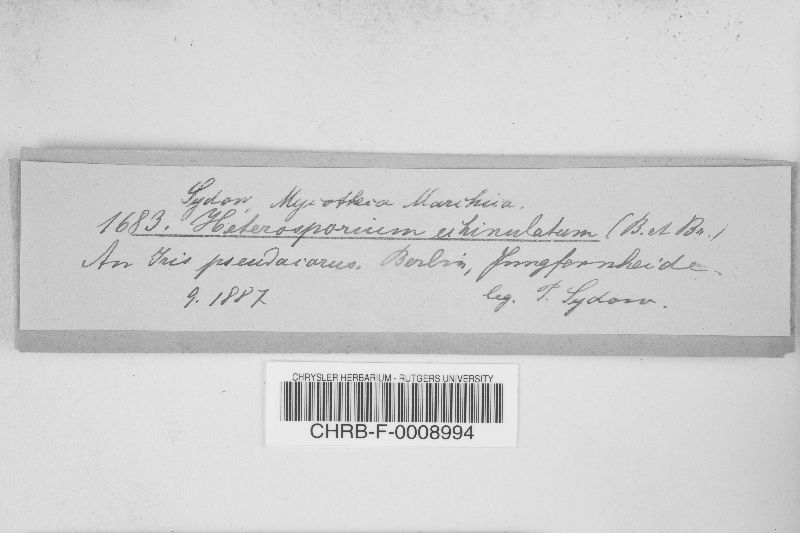 Sydow Mycotheca Marchica.
1683. Heterosporium echinulatum (B. et Br.)
An Iris pseudacorus. Berlin, Jungfernheide.
9. 1887 leg. P. Sydow.
CHRYSLER HERBARIUM - RUTGERS UNIVERSITY
CHRB-F-0008994